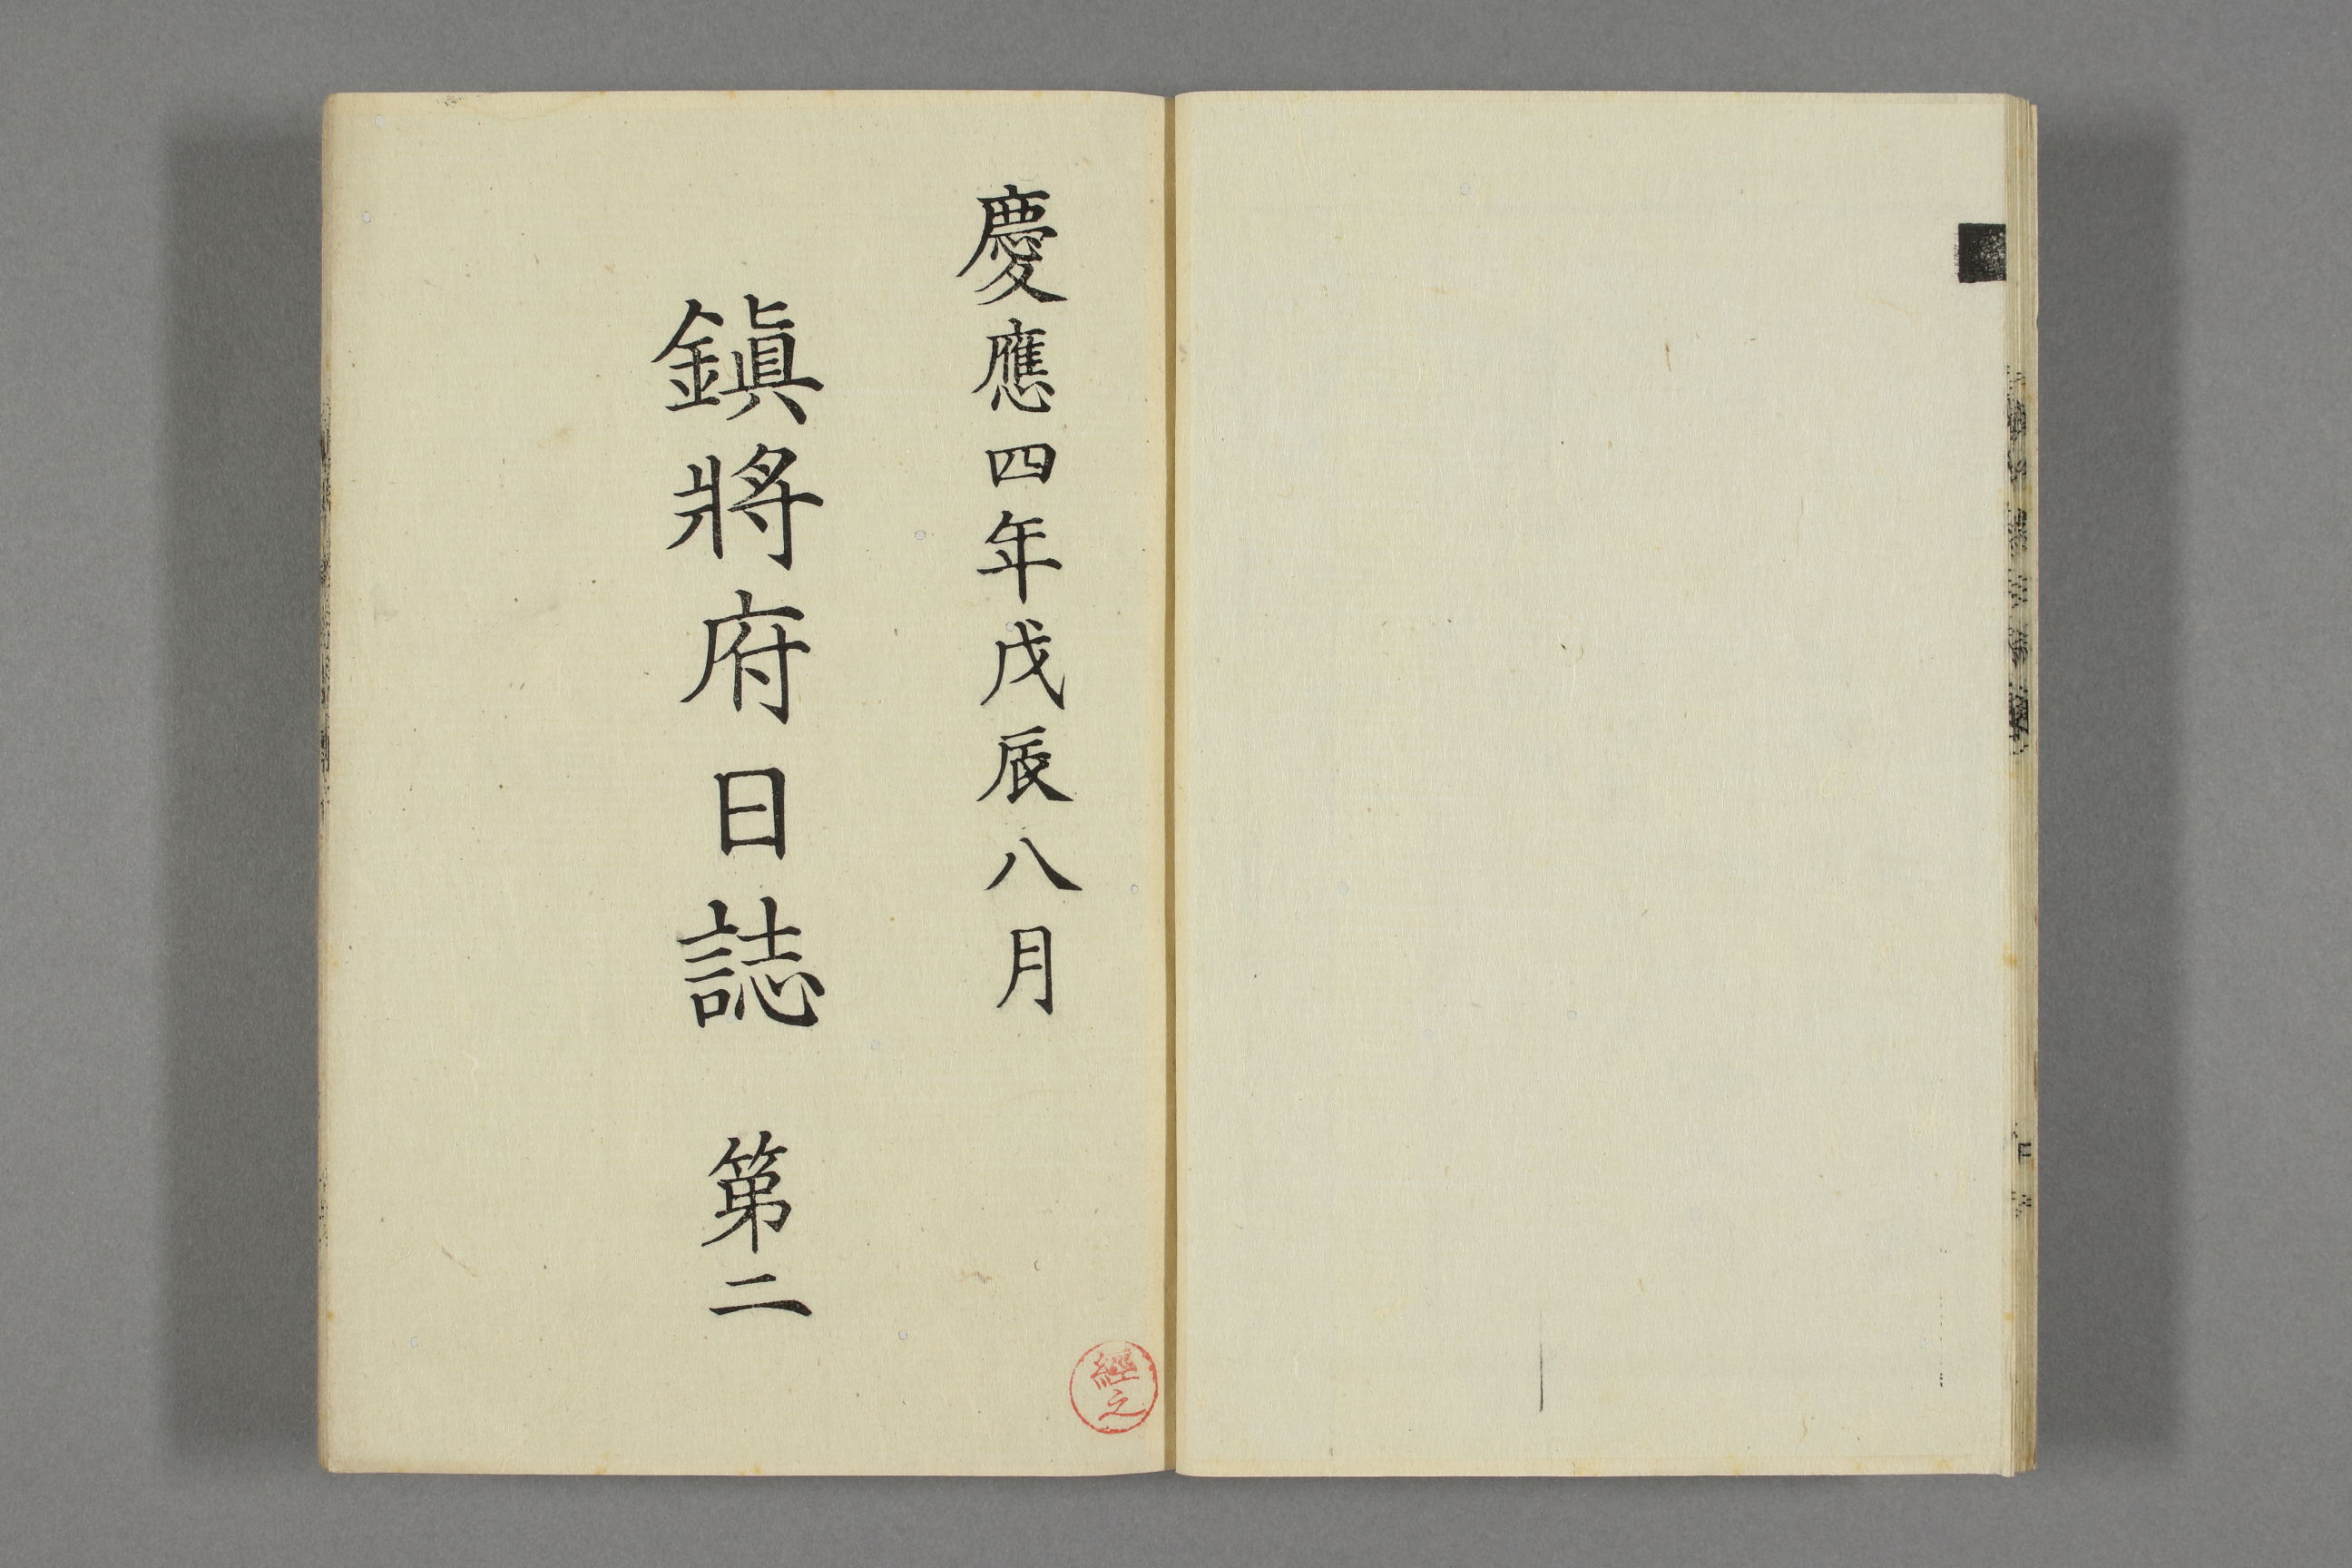 慶應四年戊辰八月
鎭將府日誌 第二
經之